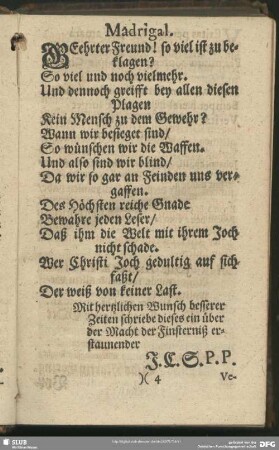 Madrigal.
GEehrter Freund! so viel ist zu be-
klagen?
So viel und noch vielmehr.
Und dennoch greifft bey allen diesen
Plagen
Kein Mensch zu dem Gewehr?
Wann wir besieget sind/
So wünschen wir die Waffen.
Und also sind wir blind/
Da wir so gar an Feinden uns ver-
gaffen.
Des Höchsten reiche Gnade
Bewahre jeden Leser/
Daß ihm die Welt mit ihrem Joch
nicht schade.
Wer Christi Joch gedultig auf sich
faßt/
Der weiß von keiner Last.
Mit hertzlichen Wunsch besserer
Zeiten schriebe dieses ein über
der Macht der Finsterniß er-
staunender
J. C. S. P. P.
)( 4 Ve-
SLUB
DFG